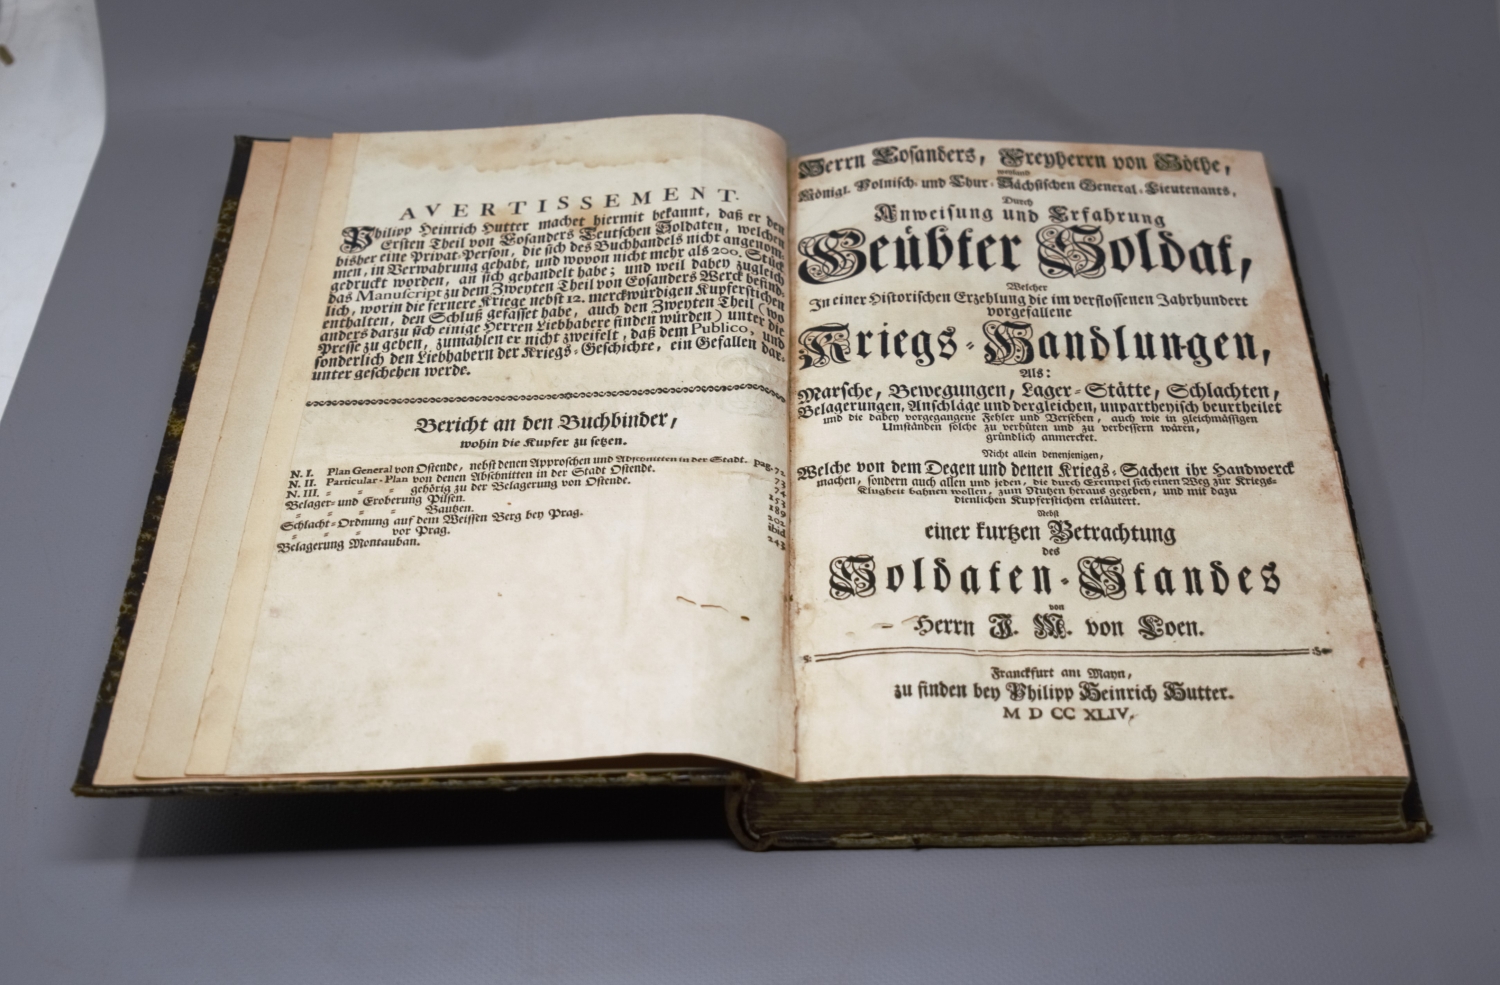 AVERTISSEMENT.
Philipp Heinrich Hutter machet hiermit bekannt, daß er den
Ersten Theil von Eosanders Teutschen Soldaten, welchen
bisher eine Privat-Person, die sich des Buchhandels nicht angenom-
men, in Verwahrung gehabt, und wovon nicht mehr als 200. Stück
gedruckt worden, an sich gehandelt habe; und weil dabey zugleich
das Manuscript zu dem Zweyten Theil von Eosanders Werck befind-
lich, worin die fernere Kriege nebst 12. merckwürdigen Kupferstichen
enthalten, den Schluß gefasset habe, auch den Zweyten Theil (wo
anders darzu sich einige Herren Liebhabere finden würden) unter die
Presse zu geben, zumahlen er nicht zweifelt, daß dem Publico, und
sonderlich den Liebhabern der Kriegs-Geschichte, ein Gefallen dar-
unter geschehen werde.
Bericht an den Buchbinder,
wohin die Kupfer zu setzen.
N. I. Plan General von Ostende, nebst denen Approschen und Abschnitten in der Stadt. pag. 72
N. II. Particular-Plan von denen Abschnitten in der Stadt Ostende. 73
N. III. = = = gehörig zu der Belagerung von Ostende. 74
Belager- und Eroberung Pilsen. 153
= = = = Bautzen. 189
Schlacht-Ordnung auf dem Weissen Berg bey Prag. 202
= = = vor Prag. ibid
Belagerung Montauban. 243
Herrn Eosanders, Freyherrn von Göthe,
weyland
Königl. Polnisch- und Chur-Sächsischen General-Lieutenants,
Durch
Anweisung und Erfahrung
Geübter Soldat,
Welcher
In einer Historischen Erzehlung die im verflossenen Jahrhundert
vorgefallene
Kriegs-Handlungen,
Als:
Marsche, Bewegungen, Lager-Stätte, Schlachten,
Belagerungen, Anschläge und dergleichen, unpartheyisch beurtheilet
und die dabey vorgegangene Fehler und Versehen, auch wie in gleichmäßigen
Umständen solche zu verhüten und zu verbessern wären,
gründlich anmercket.
Nicht allein denenjenigen,
Welche von dem Degen und denen Kriegs-Sachen ihr Handwerck
machen, sondern auch allen und jeden, die durch Exempel sich einen Weg zur Kriegs-
Klugheit bahnen wollen, zum Nutzen heraus gegeben, und mit dazu
dienlichen Kupferstichen erläutert.
Nebst
einer kurtzen Betrachtung
des
Soldaten-Standes
von
Herrn J. M. von Loen.
Franckfurt am Mayn,
zu finden bey Philipp Heinrich Hutter.
M D CC XLIV.